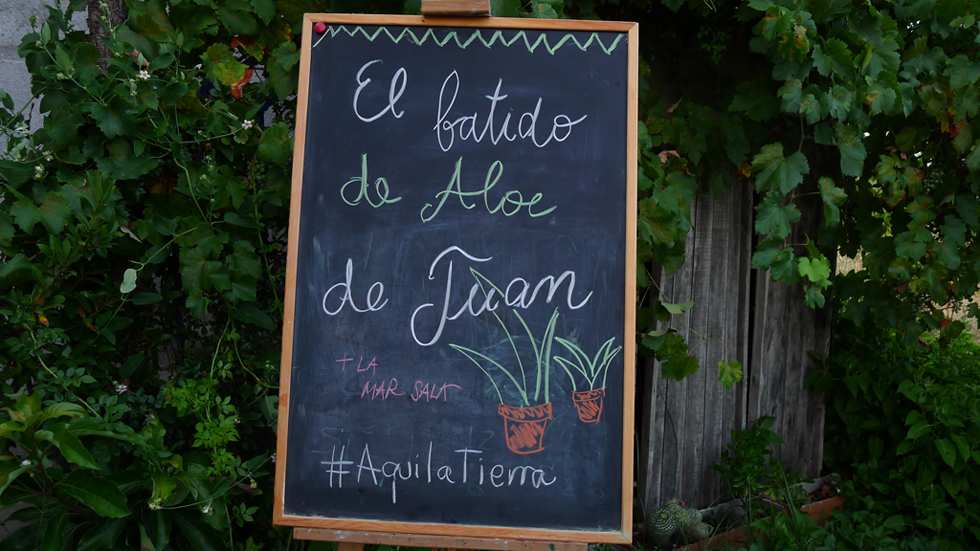 El batido
de Aloe
de Juan
+ LA
MAR SALÁ
#AquilaTierra